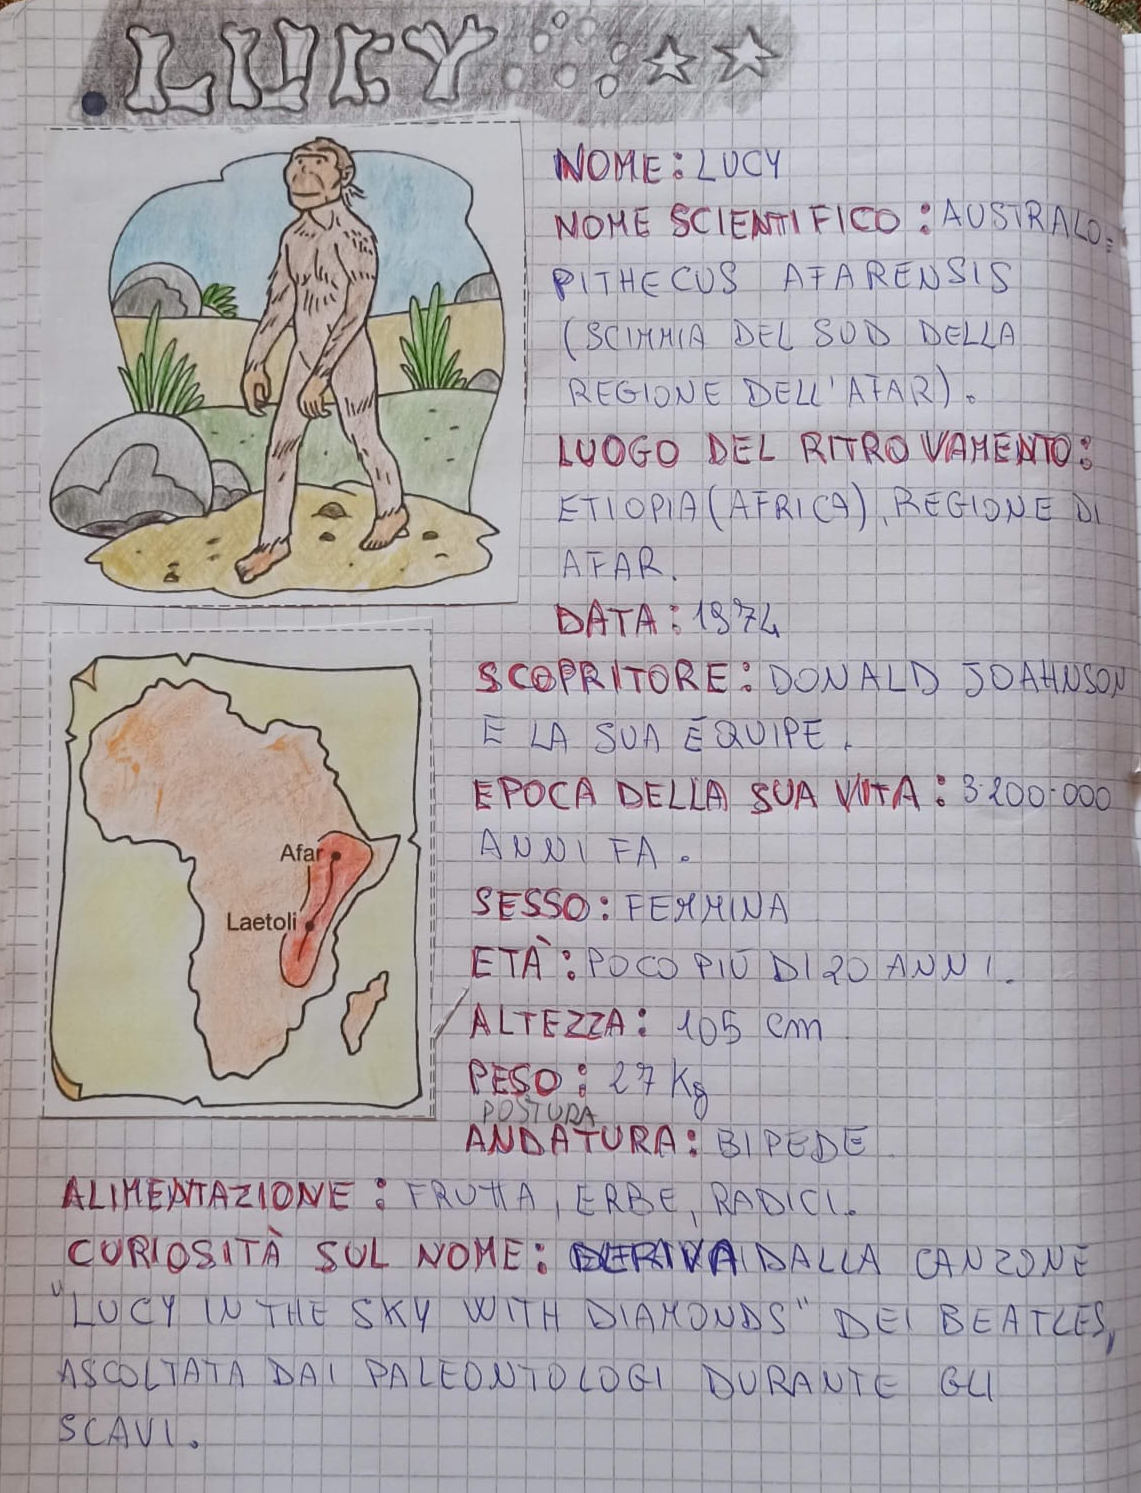 LUCY
NOME: LUCY
NOME SCIENTIFICO: AUSTRALO=
PITHECUS AFARENSIS
(SCIMMIA DEL SUD DELLA
REGIONE DELL'AFAR).
LUOGO DEL RITROVAMENTO:
ETIOPIA (AFRICA), REGIONE DI
AFAR.
DATA: 1974
SCOPRITORE: DONALD JOAHNSON
E LA SUA ÉQUIPE.
EPOCA DELLA SUA VITA: 3·200·000
ANNI FA.
Afar
Laetoli
SESSO: FEMMINA
ETÀ: POCO PIÙ DI 20 ANNI.
ALTEZZA: 105 cm
PESO: 27 Kg
POSTURA
ANDATURA: BIPEDE
ALIMENTAZIONE: FRUTTA, ERBE, RADICI.
CURIOSITÀ SUL NOME: DERIVA DALLA CANZONE
"LUCY IN THE SKY WITH DIAMONDS" DEI BEATLES,
ASCOLTATA DAI PALEONTOLOGI DURANTE GLI
SCAVI.